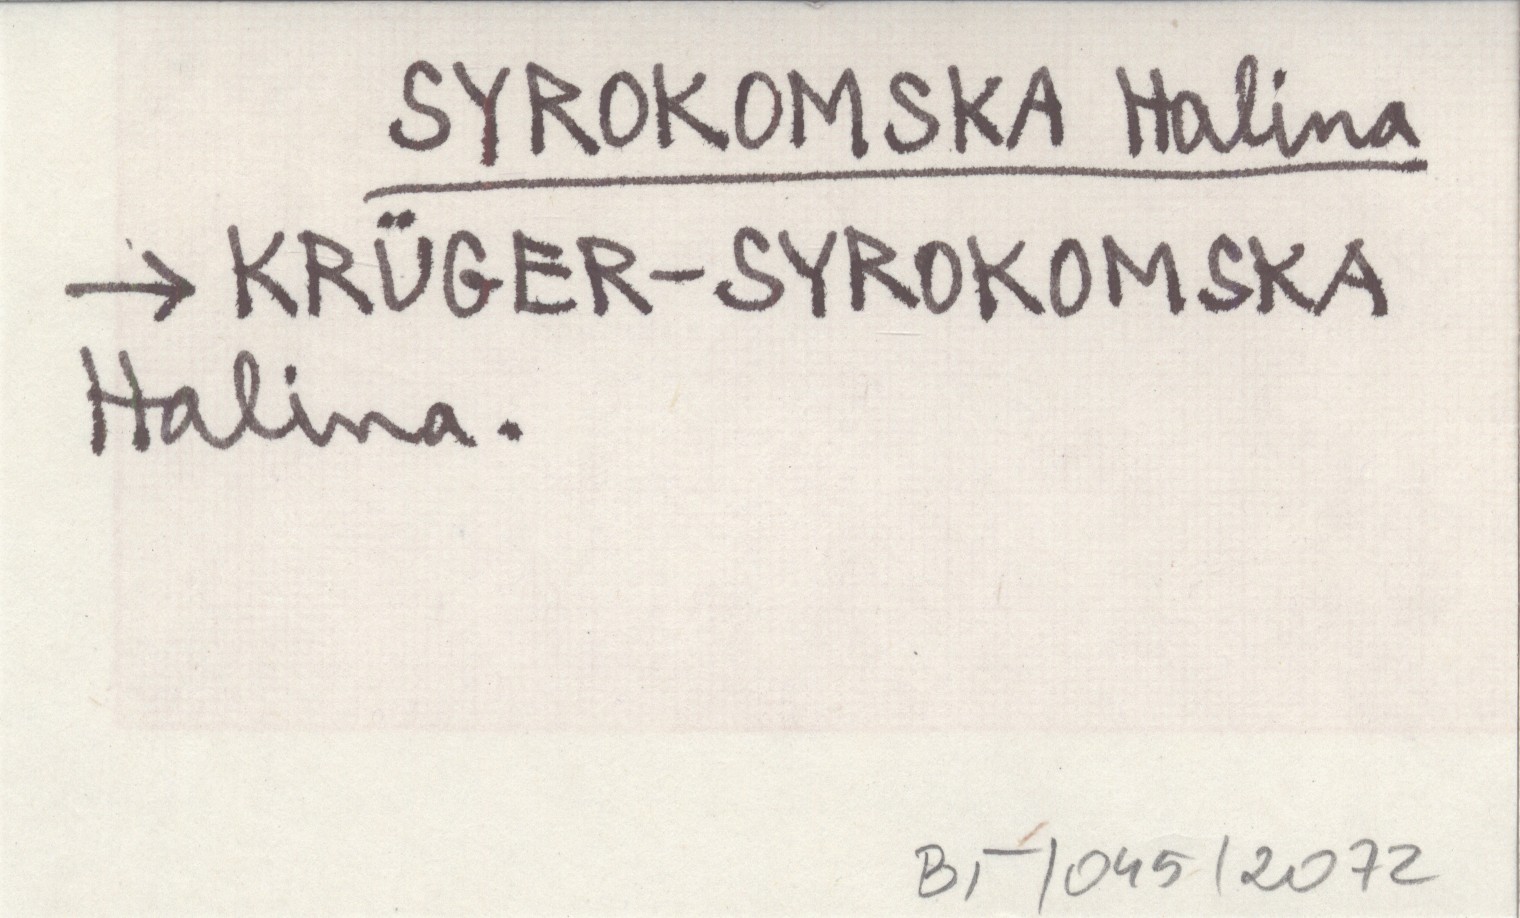 SYROKOMSKA Halina
→ KRÜGER-SYROKOMSKA
Halina.
BI-/045/2072